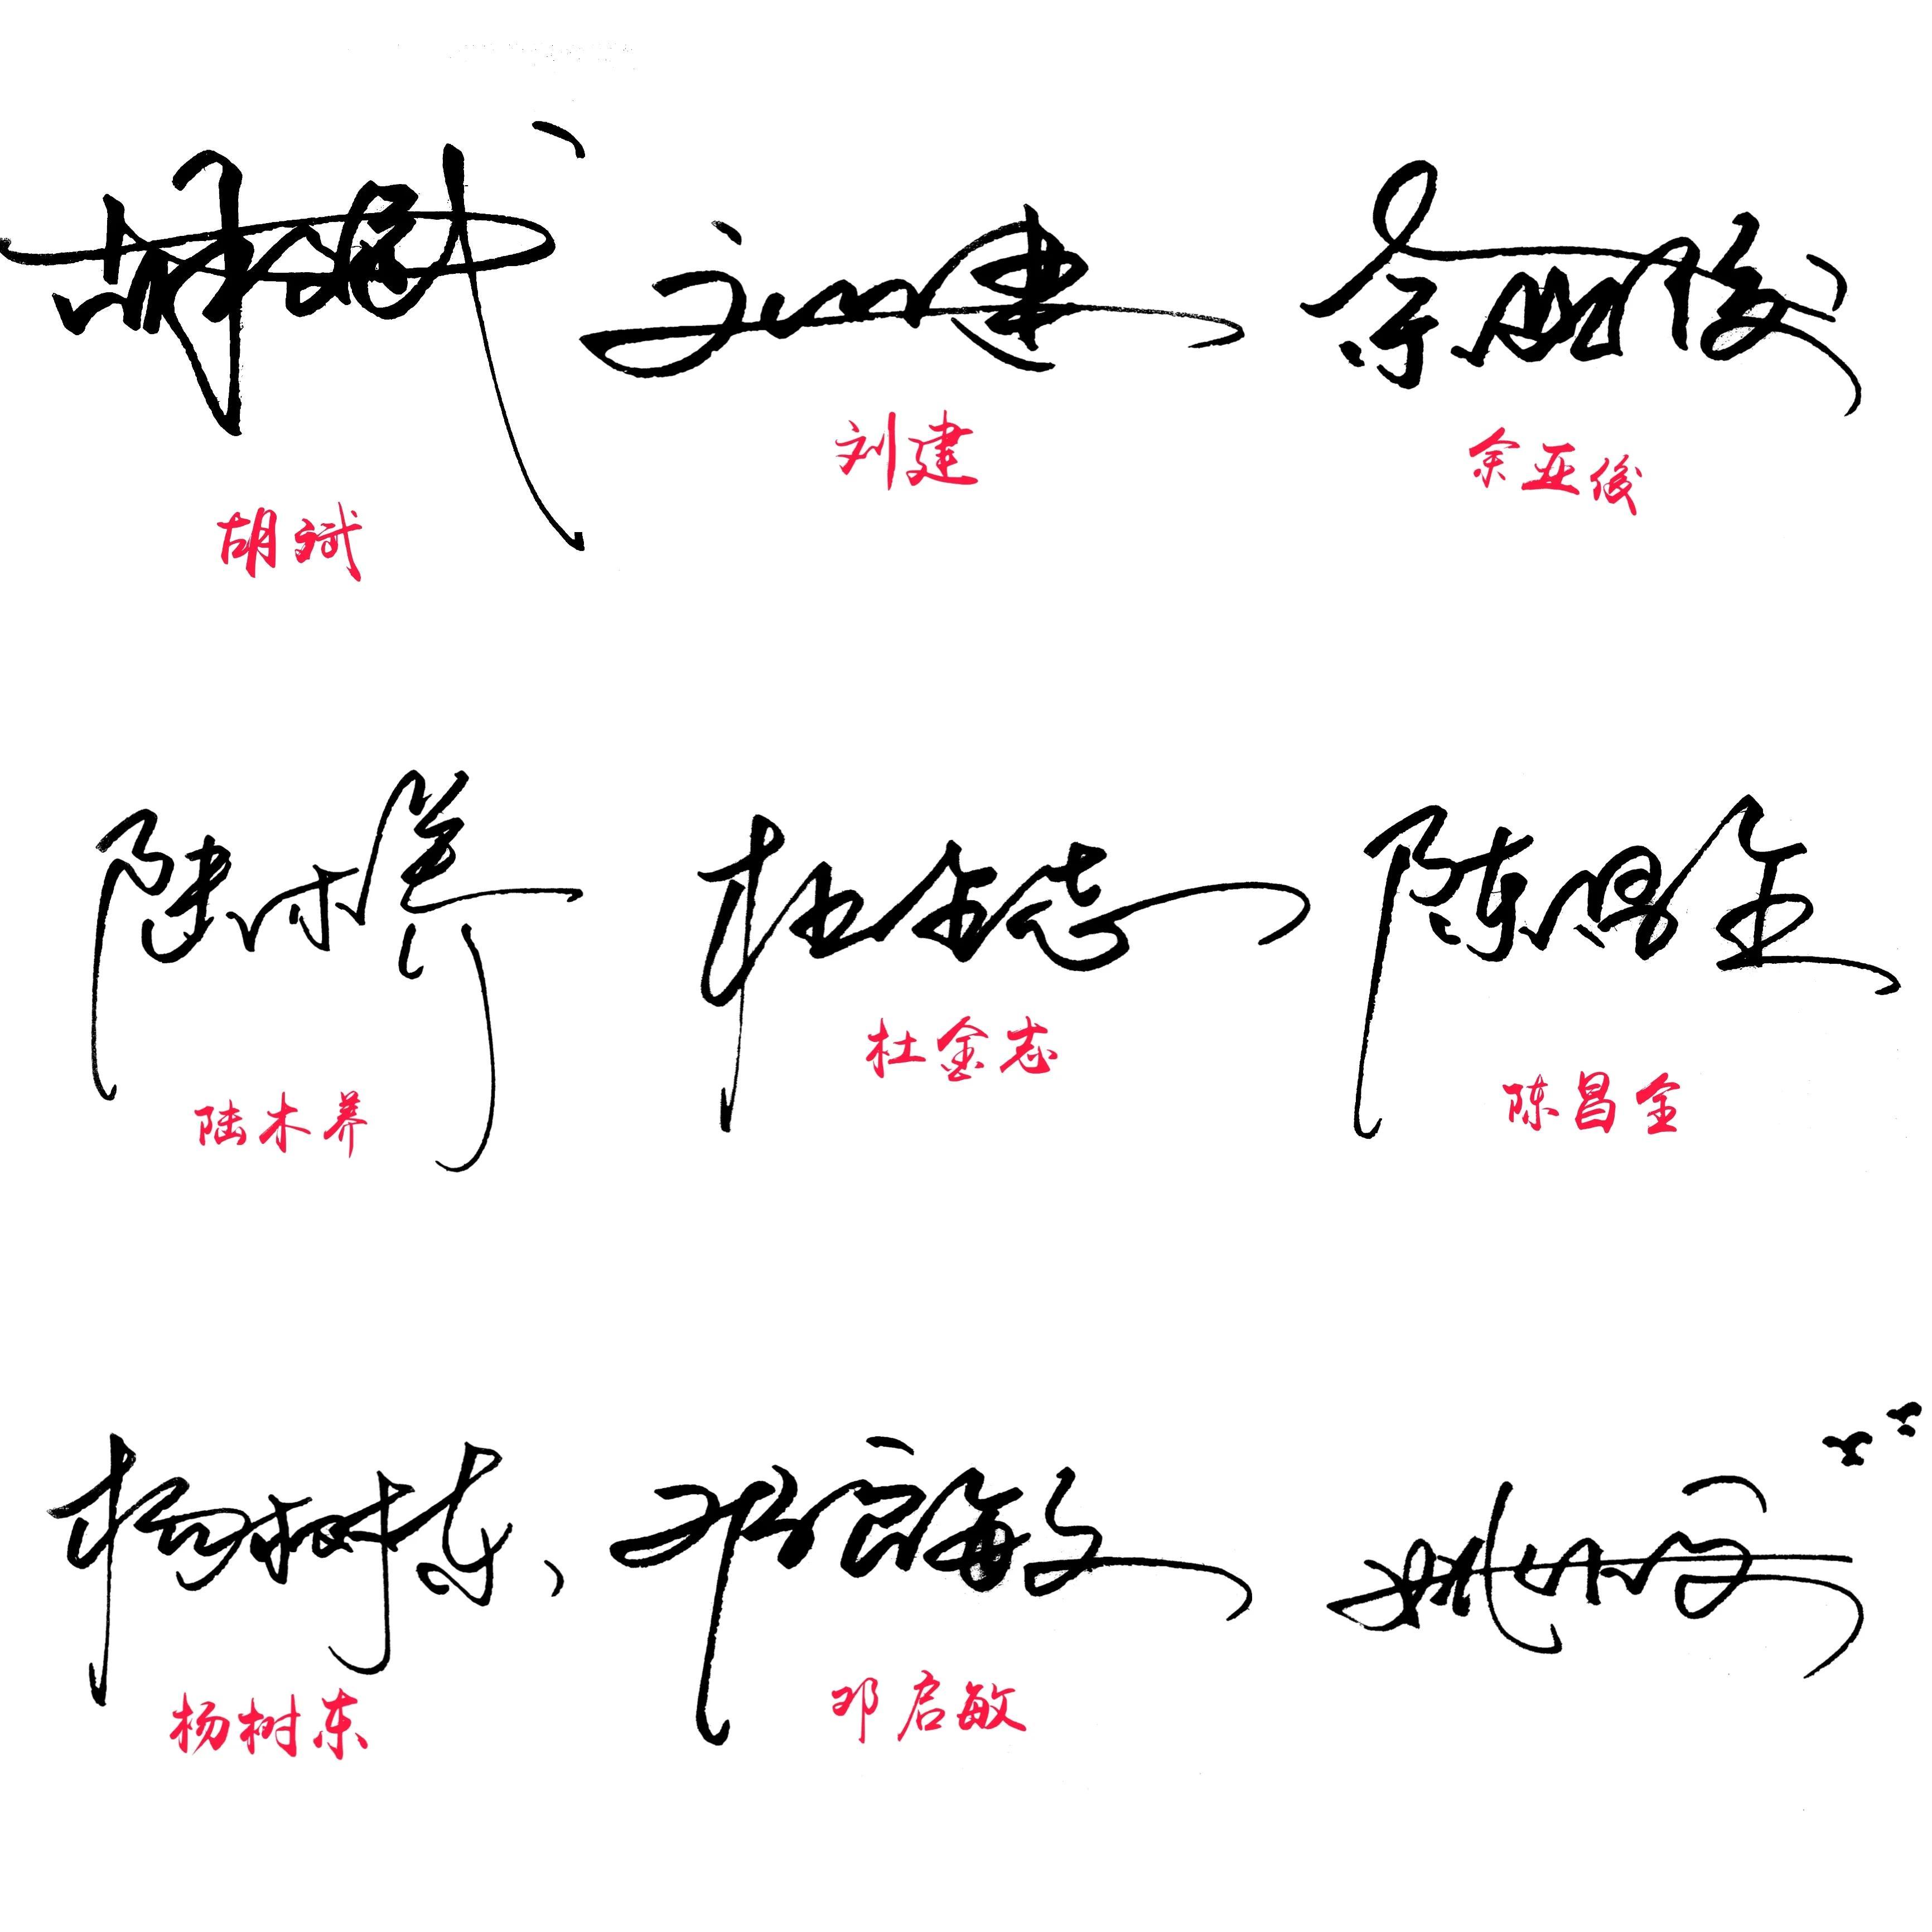 胡斌
刘建
余亚俊
陆木养
杜金志
陈昌金
杨树东
邓启敏